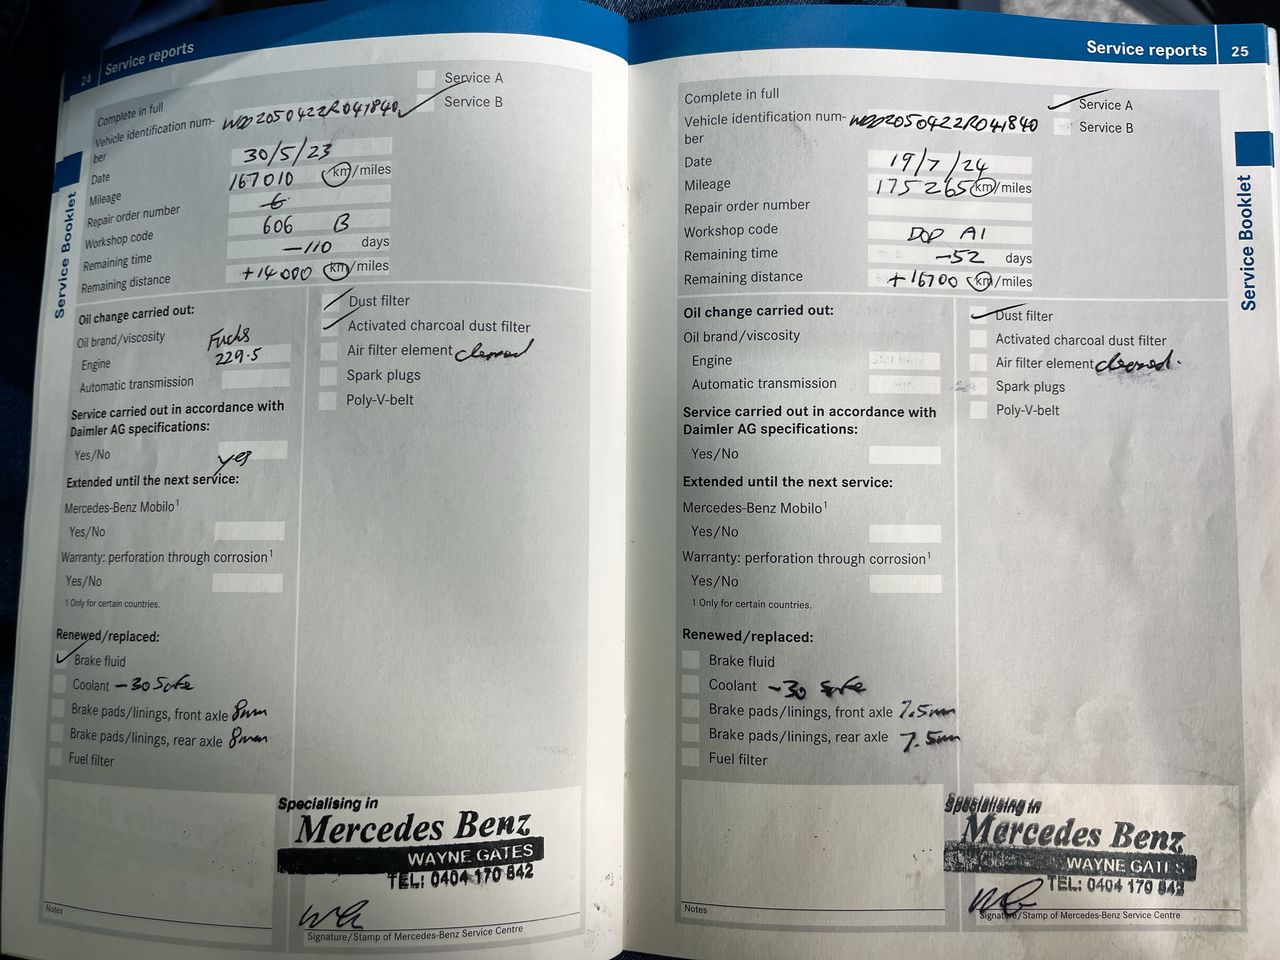 24 Service reports
Complete in full
Service A
Service B
Vehicle identification num-
ber
WDD2050422R041840
Date 30/5/23
Mileage 167010 km/miles
Repair order number
Workshop code 606 B
Remaining time -110 days
Remaining distance +14000 km/miles
Oil change carried out:
Oil brand/viscosity Fuchs
Engine 229.5
Automatic transmission
Service carried out in accordance with
Daimler AG specifications:
Yes/No yes
Extended until the next service:
Mercedes-Benz Mobilo1
Yes/No
Warranty: perforation through corrosion1
Yes/No
1 Only for certain countries.
Dust filter
Activated charcoal dust filter
Air filter element cleaned
Spark plugs
Poly-V-belt
Renewed/replaced:
Brake fluid
Coolant -30 Safe
Brake pads/linings, front axle 8mm
Brake pads/linings, rear axle 8mm
Fuel filter
Specialising in
Mercedes Benz
WAYNE GATES
TEL: 0404 170 842
Notes
Signature/Stamp of Mercedes-Benz Service Centre
Service Booklet
Service reports 25
Complete in full
Service A
Service B
Vehicle identification num-
ber
WDD2050422R041840
Date 19/7/24
Mileage 175265 km/miles
Repair order number
Workshop code A1
Remaining time -52 days
Remaining distance +16700 km/miles
Oil change carried out:
Oil brand/viscosity
Engine
Automatic transmission
Service carried out in accordance with
Daimler AG specifications:
Yes/No
Extended until the next service:
Mercedes-Benz Mobilo1
Yes/No
Warranty: perforation through corrosion1
Yes/No
1 Only for certain countries.
Dust filter
Activated charcoal dust filter
Air filter element cleaned.
Spark plugs
Poly-V-belt
Renewed/replaced:
Brake fluid
Coolant -30 Safe
Brake pads/linings, front axle 7.5mm
Brake pads/linings, rear axle 7.5mm
Fuel filter
Specialising in
Mercedes Benz
WAYNE GATES
TEL: 0404 170 842
Notes
Signature/Stamp of Mercedes-Benz Service Centre
Service Booklet